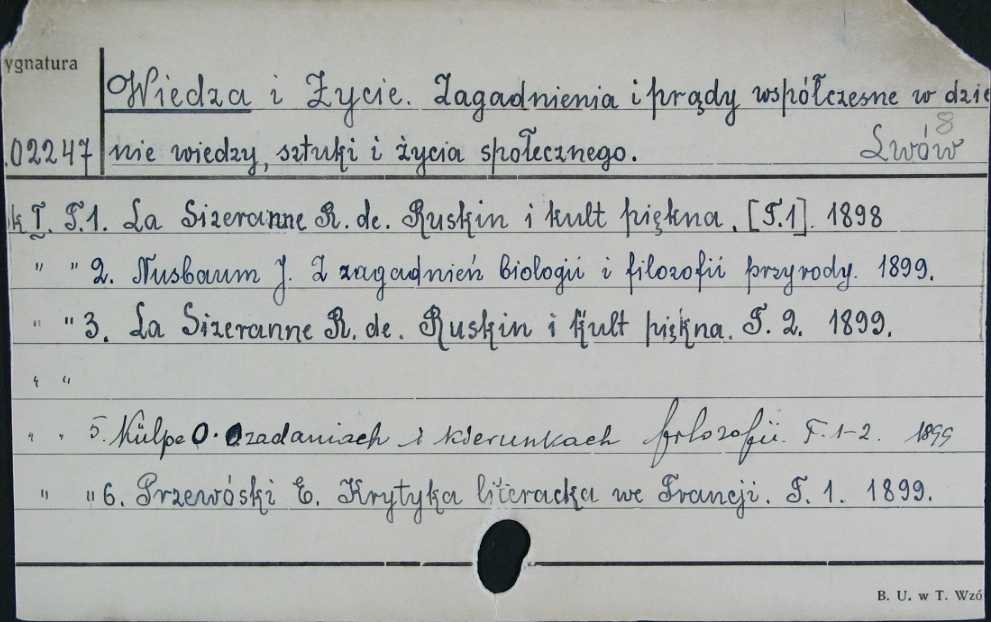 ygnatura
Wiedza i Życie. Zagadnienia i prądy współczesne w dzie
8
.02247 nie wiedzy, sztuki i życia społecznego. Lwów
k I. T.1. La Sizeranne R. de. Ruskin i kult piękna. [T.1]. 1898
" " 2. Nusbaum J. Z zagadnień biologii i filozofii przyrody. 1899.
" " 3. La Sizeranne R. de. Ruskin i kult piękna. T. 2. 1899.
" "
" " 5. Külpe O. O zadaniach i kierunkach filozofii. T. 1-2. 1899
" " 6. Przewóski E. Krytyka literacka we Francji. T. 1. 1899.
B. U. w T. Wzó